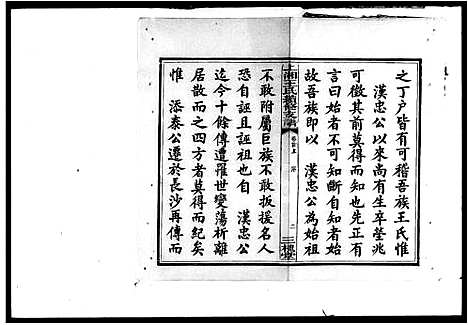 之丁戶皆有可稽吾族王氏惟
漢忠公以來尚有生卒塋兆
可徵其前莫得而知也先正有
言曰始者不可知斷自知始者
故吾族即以 漢忠公為始祖
上湘王氏續修支譜
卷首上 序 二
三槐堂
不敢附屬巨族不敢扳援名人
恐自誣且誣祖也自 漢忠公
迄今十餘傳遭罹世變蕩析離
居散而之四方者莫得而紀矣
惟 添泰公遷於長沙再傳而